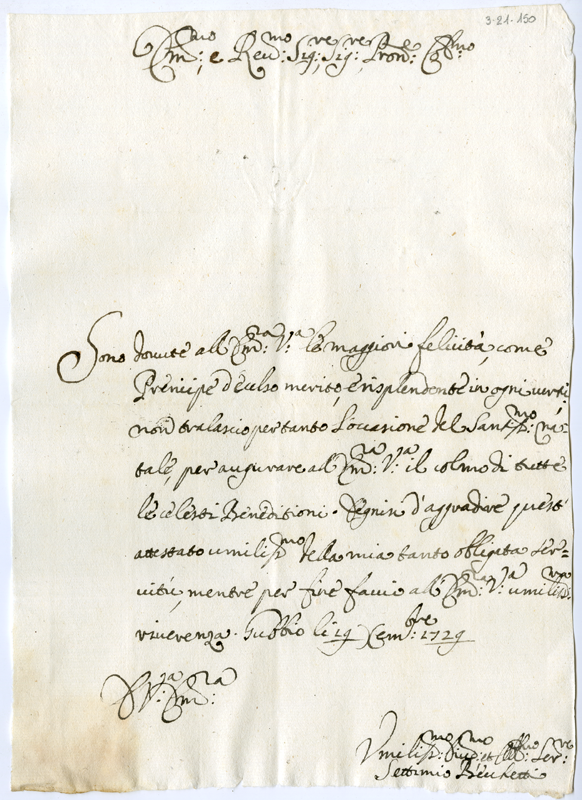 3-21-150
Em:mo e Reu:mo Sig:re Sig:re Pron:e
Sono dovute all'Em:za V:a le maggiori felicità, come
Prencipe d'eculso merito, e risplendente in ogni vertù,
non tralascio per tanto l'occasione del Santis:mo Na-
tale, per augurare all'Em:za V:a il colmo di tutte
le celesti Beneditioni. Degnisi d'aggradire quest'
attestato umilis:mo della mia tanto obligata ser-
vitù, mentre per fine faccio all'Em:za V:a umiliss:ma
riverenza. Gubbio li 19 Xcem:bre 1729
D V:ra Em:za
Vmilis:mo Diuo:mo et Ser:re
Settimio Becchetti